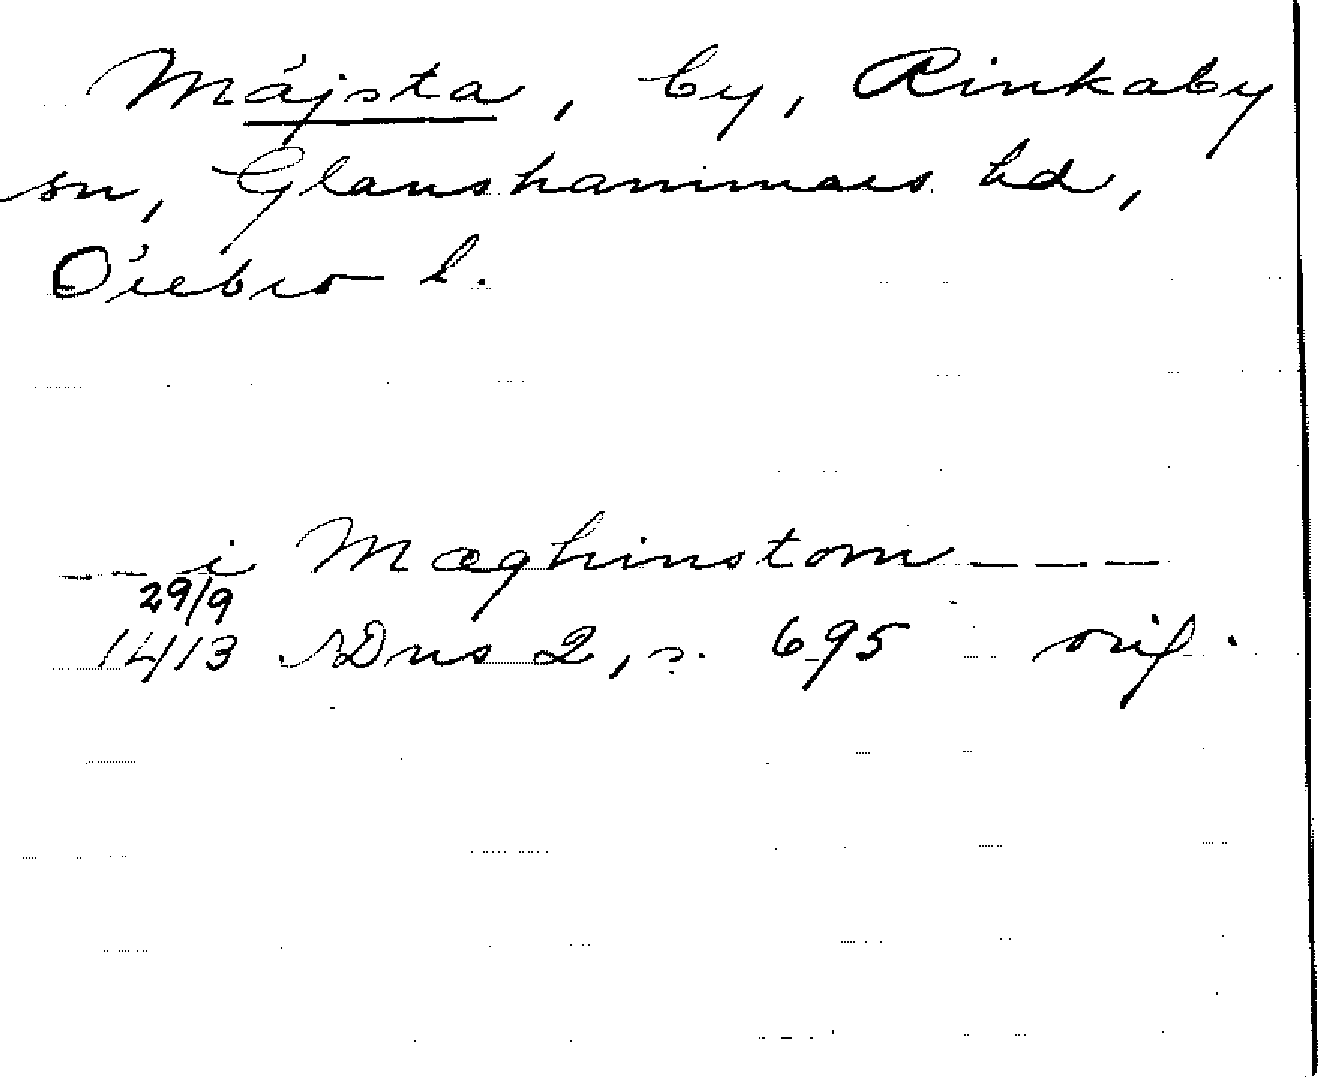 Mäjsta, by, Rinkaby
sn, Glanshammars hd,
Örebro l.
--- i Mæghinstom ----
29/9
1413 SDns 2, s. 695 orig.